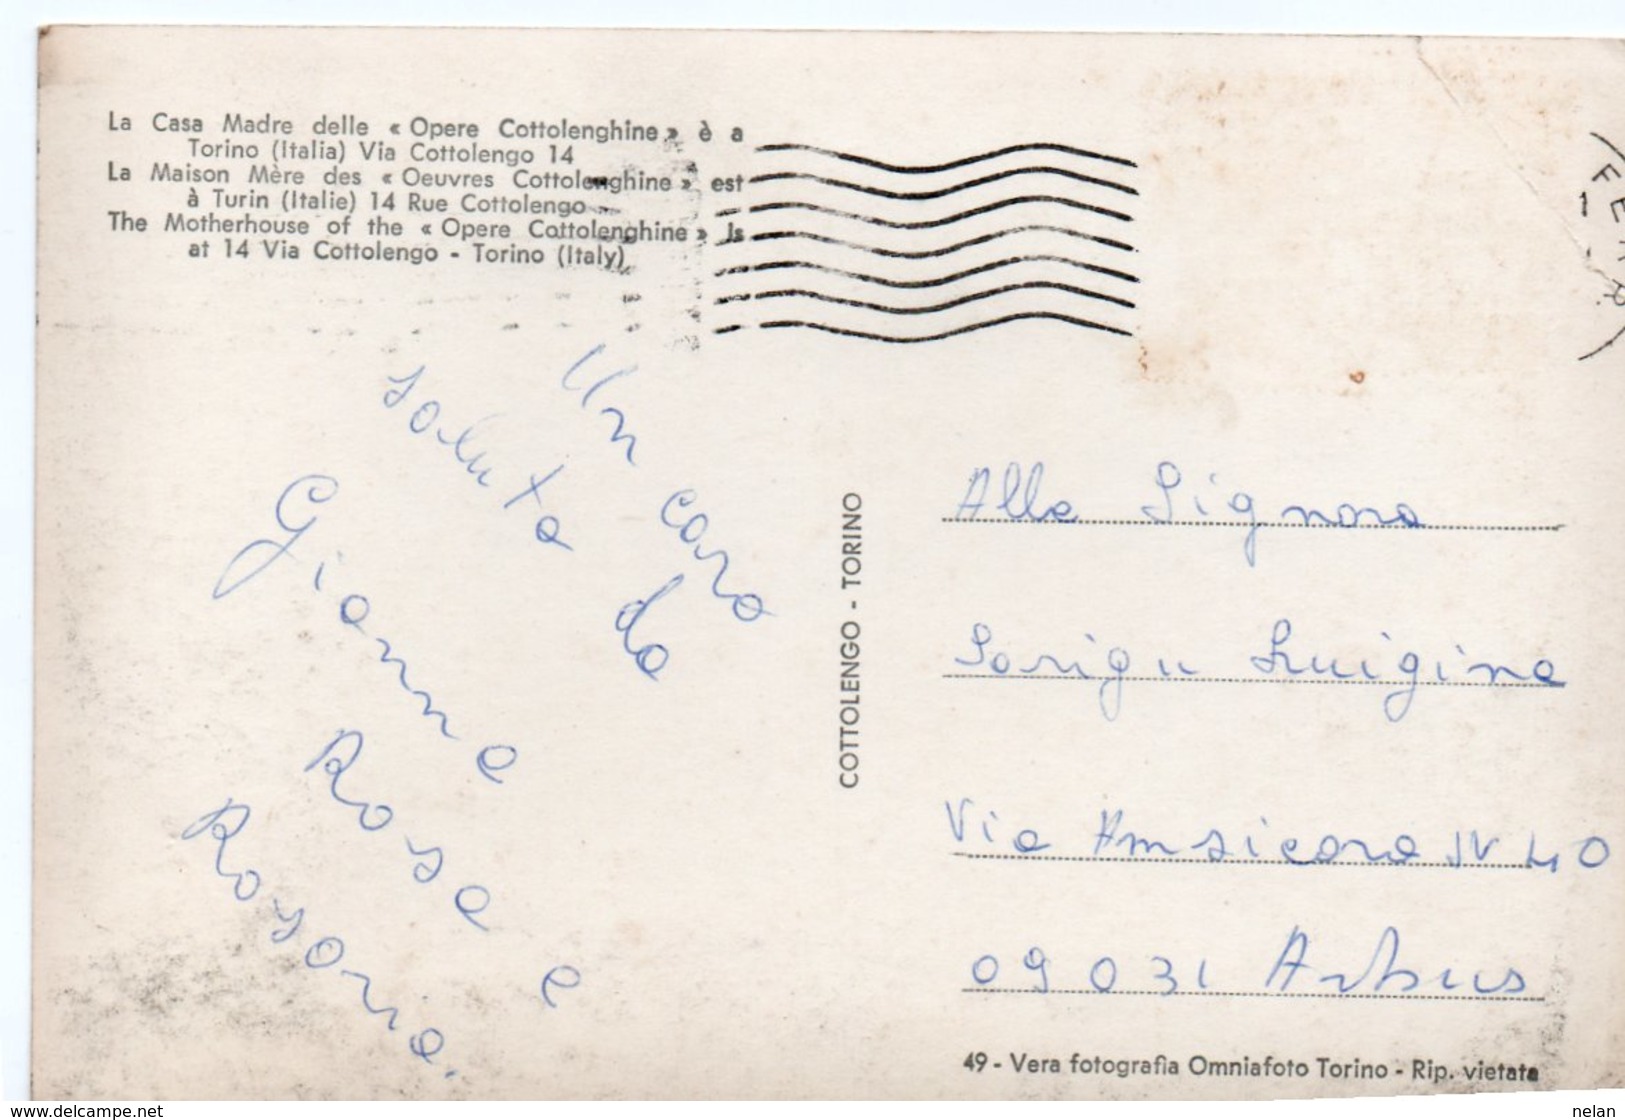 La Casa Madre delle « Opere Cottolenghine » è a
Torino (Italia) Via Cottolengo 14
La Maison Mère des « Oeuvres Cottolenghine » est
à Turin (Italie) 14 Rue Cottolengo
The Motherhouse of the « Opere Cottolenghine » Is
at 14 Via Cottolengo - Torino (Italy)
Un caro
saluto da
Gianna
Rosa e
Rosaria.
COTTOLENGO - TORINO
Alla Signora
Sarigu Luigina
Via Amsicora IV 40
09031 Arbus
49 - Vera fotografia Omniafoto Torino - Rip. vietata
www.delcampe.net
nelan